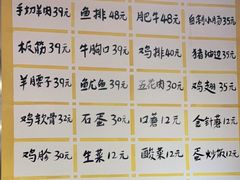 手切羊肉39元 鱼排48元 肥牛48元 自制小酥肉35元
板筋39元 牛胸口39元 鸡排40元 猪油边35元
羊腰子39元 鱿鱼39元 五花肉30元 鸡翅35元
鸡软骨32元 石蛋30元 口蘑12元 金针蘑12元
鸡胗30元 生菜12元 酸菜12元 蛋炒饭12元